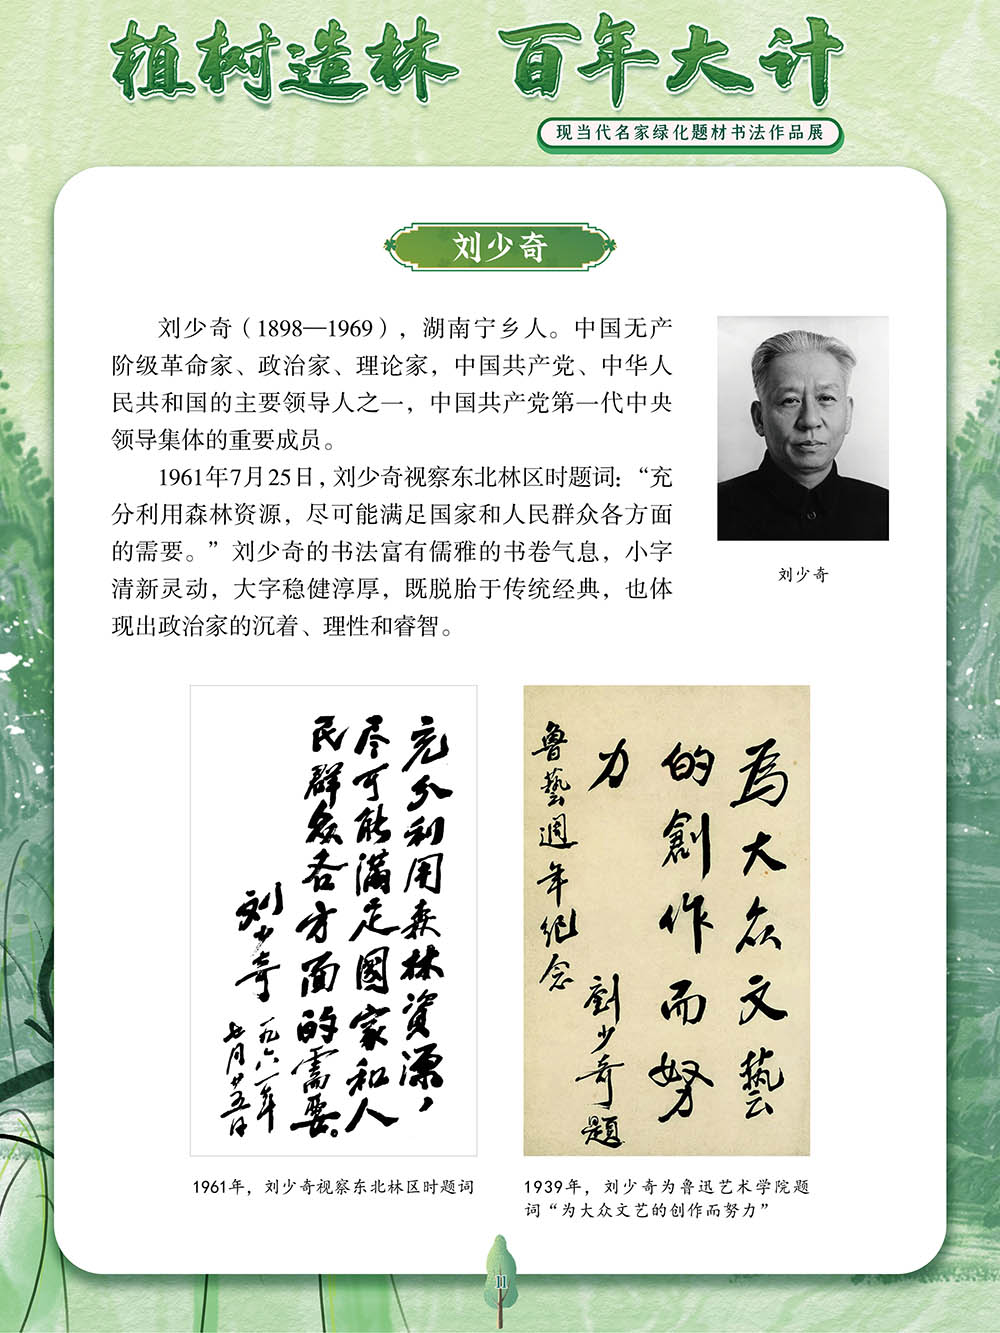 植树造林 百年大计
现当代名家绿化题材书法作品展
刘少奇
刘少奇（1898—1969），湖南宁乡人。中国无产
阶级革命家、政治家、理论家，中国共产党、中华人
民共和国的主要领导人之一，中国共产党第一代中央
领导集体的重要成员。
1961年7月25日，刘少奇视察东北林区时题词：“充
分利用森林资源，尽可能满足国家和人民群众各方面
的需要。”刘少奇的书法富有儒雅的书卷气息，小字
清新灵动，大字稳健淳厚，既脱胎于传统经典，也体
现出政治家的沉着、理性和睿智。
刘少奇
充分利用森林资源，
尽可能满足國家和人
民群众各方面的需要。
刘少奇
一九六一年
七月廿五日
为大众文藝
的創作而努
力
劉少奇題
魯藝週年纪念
1961年，刘少奇视察东北林区时题词
1939年，刘少奇为鲁迅艺术学院题
词“为大众文艺的创作而努力”
11